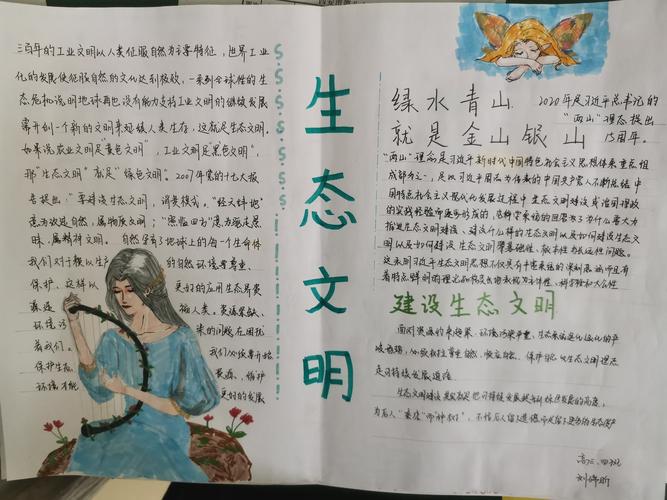 三百年的工业文明以人类征服自然为主要特征,世界工业
化的发展使征服自然的文化达到极致,一系列全球性的生
态危机说明地球再也没有能力支持工业文明的继续发展
需开创一个新的文明来延续人类生存,这就是生态文明.
如果说农业文明是黄色文明",工业文明是"黑色文明",
那"生态文明"就是"绿色文明"。2007年党的十七大报
告提出:"要建设生态文明,消费模式。"经天纬地"
意为改造自然,属物质文明;"照临四方"意为驱走愚
昧,属精神文明。自然孕育了地球上的每一个生命体
我们对于赖以生产的自然环境要尊重、
保护、这样以更好的应用生态异类
类造福人类。资源紧缺、
环境污染的问题在困扰
着我们。我们必须要开始
保护生态资源、保护
环境才能更好的发展
生态文明
绿水青山 2020年是习近平总书记的
"两山"理念提出
就是金山银山 15周年。
"两山"理念是习近平新时代中国特色社会主义思想体系重要组
成部分之一,是以习近平同志为核心的中国共产党人不断总结中
国特色社会主义现代化发展过程中生态文明建设或治国理政
的实践经验而逐步形成的,
推进生态文明建设、建设什么样的生态文明以及如何建设生态文
明以及如何建设生态文明等基础性、根本性和长远性问题。
建设生态文明
面对资源约束趋紧、环境污染严重、生态系统退化的严
峻形势,必须树立尊重自然、顺应自然、保护自然的生态文明理念
走可持续发展道路
高二.四班
刘伟昕